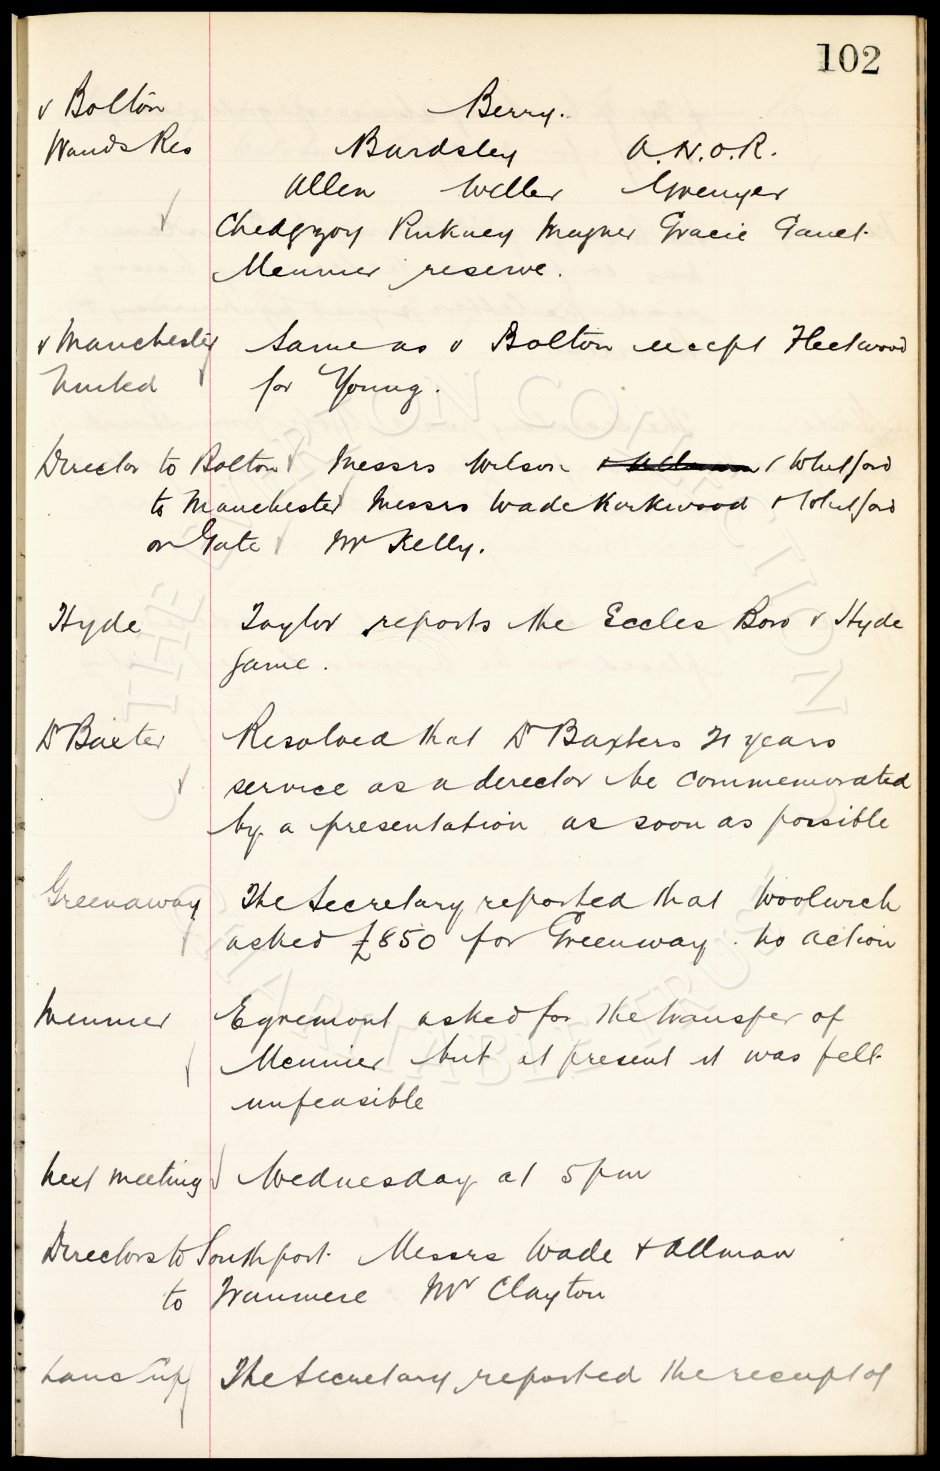 102
v Bolton Berry.
Wands Res Bardsley A.N.O.R.
Allen Weller Grenyer
Chedgzoy Pinkney Magner Gracie Gault
Meunier reserve.
v Manchester Same as v Bolton except Fleetwood
United for Young.
Director to Bolton Messrs Wilson + Allman + Whitford
to Manchester Messrs Wade Kirkwood + Whitford
on Gate Mr Kelly.
Hyde Taylor reports the Eccles Boro v Hyde
game.
Dr Baxter Resolved that Dr Baxters 21 years
service as a director be commemorated
by a presentation as soon as possible
Greenaway The Secretary reported that Woolwich
asked £850 for Greenway. No action
Meunier Egremont asked for the transfer of
Meunier but at present it was felt
unfeasible
Next meeting Wednesday at 5 pm
Directors to Southport Messrs Wade + Allman
to Tranmere Mr Clayton
Lanc Cup The Secretary reported the receipt of
THE EVERTON COLLECTION
CHARITABLE TRUST